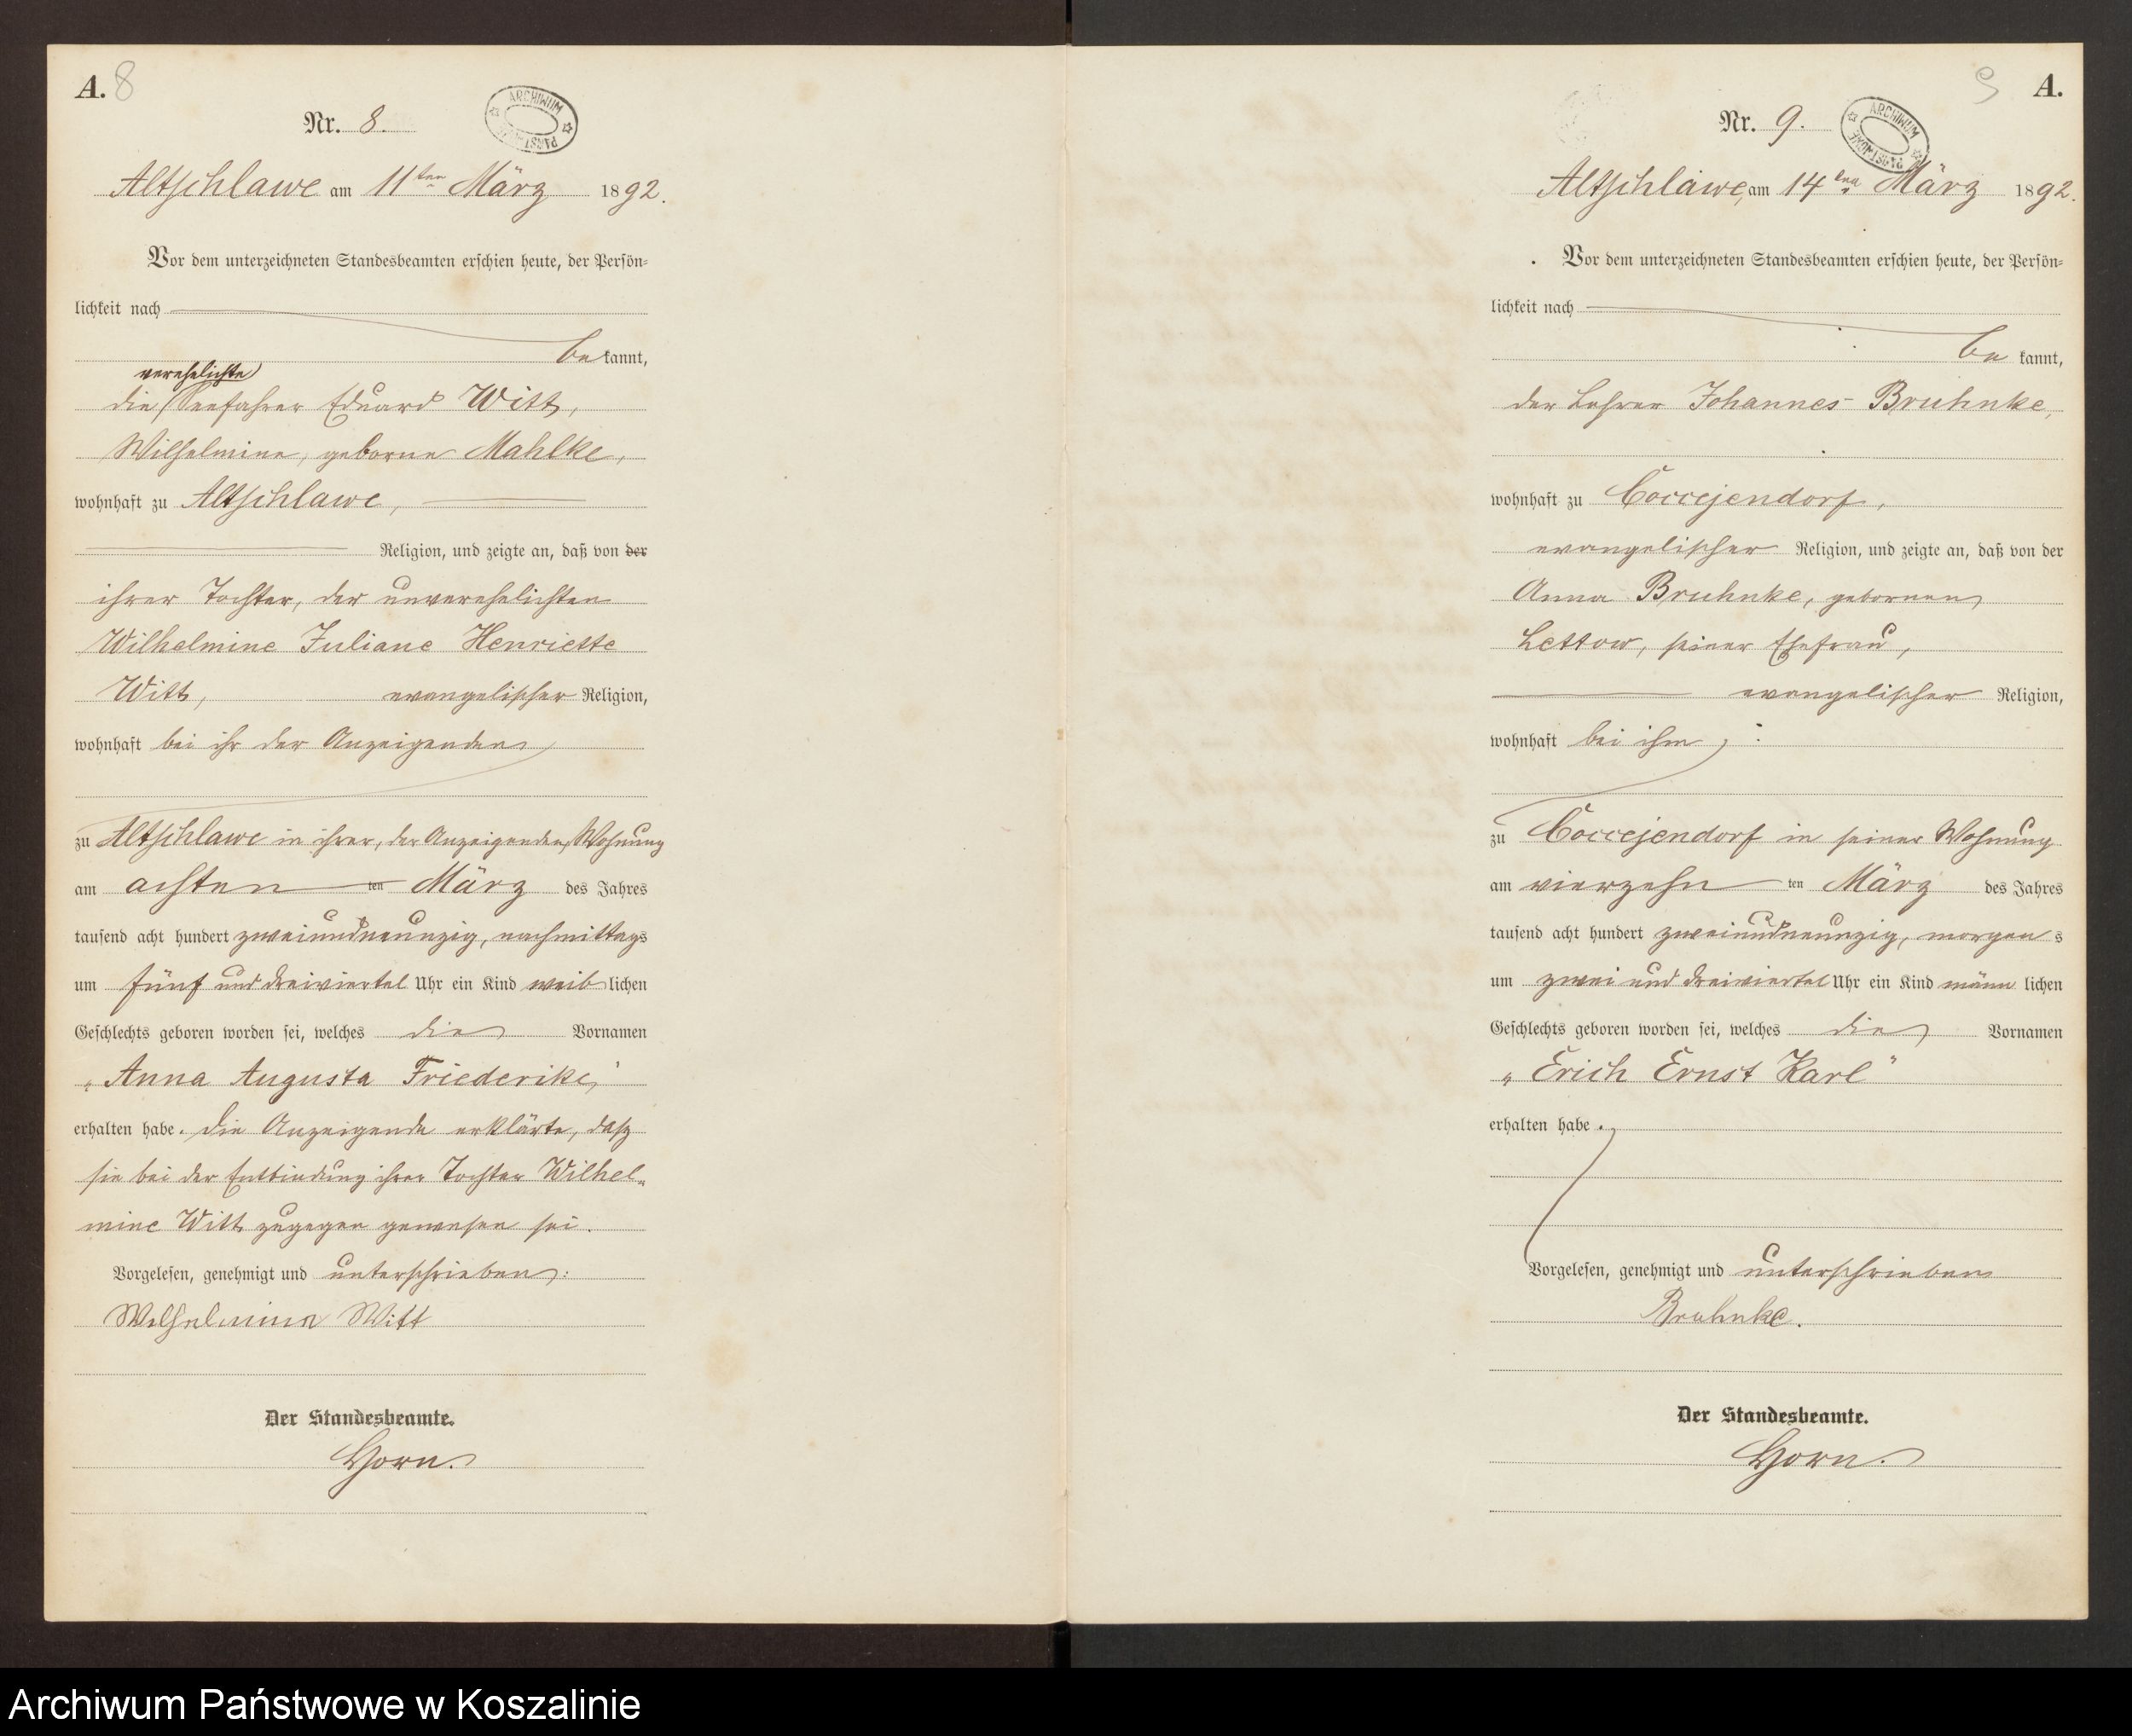 A. 8
ARCHIWUM PAŃSTWOWE
Nr. 8.
Altschlawe am 11ten März 1892.
Vor dem unterzeichneten Standesbeamten erschien heute, der Persön=
lichkeit nach
be kannt,
verehelichte
die Seefahrer Eduard Witt,
Wilhelmine, geborne Mahlke,
wohnhaft zu Altschlawe,
Religion, und zeigte an, daß von der
ihrer Tochter, der unverehelichten
Wilhelmine Juliane Henriette
Witt, evangelischer Religion,
wohnhaft bei ihr der Anzeigenden
zu Altschlawe in ihrer, der Anzeigenden, Wohnung
am achten ten März des Jahres
tausend acht hundert zweiundneunzig, nachmittags
um fünf und dreiviertel Uhr ein Kind weib lichen
Geschlechts geboren worden sei, welches die Vornamen
„Anna Augusta Friederike,“
erhalten habe. Die Anzeigende erklärte, daß
sie bei der Entbindung ihrer Tochter Wilhel-
mine Witt zugegen gewesen sei.
Vorgelesen, genehmigt und unterschrieben:
Wilhelmine Witt
Der Standesbeamte.
Horn.
9 A.
ARCHIWUM PAŃSTWOWE
Nr. 9.
Altschlawe, am 14ten März 1892.
Vor dem unterzeichneten Standesbeamten erschien heute, der Persön=
lichkeit nach
be kannt,
der Lehrer Johannes Bruhnke,
wohnhaft zu Coccejendorf,
evangelischer Religion, und zeigte an, daß von der
Anna Bruhnke, gebornen
Lettow, seiner Ehefrau,
evangelischer Religion,
wohnhaft bei ihm
zu Coccejendorf in seiner Wohnung
am vierzehn ten März des Jahres
tausend acht hundert zweiundneunzig, morgen s
um zwei und dreiviertel Uhr ein Kind männ lichen
Geschlechts geboren worden sei, welches die Vornamen
„Erich Ernst Karl“
erhalten habe.
Vorgelesen, genehmigt und unterschrieben
Bruhnke.
Der Standesbeamte.
Horn.
Archiwum Państwowe w Koszalinie